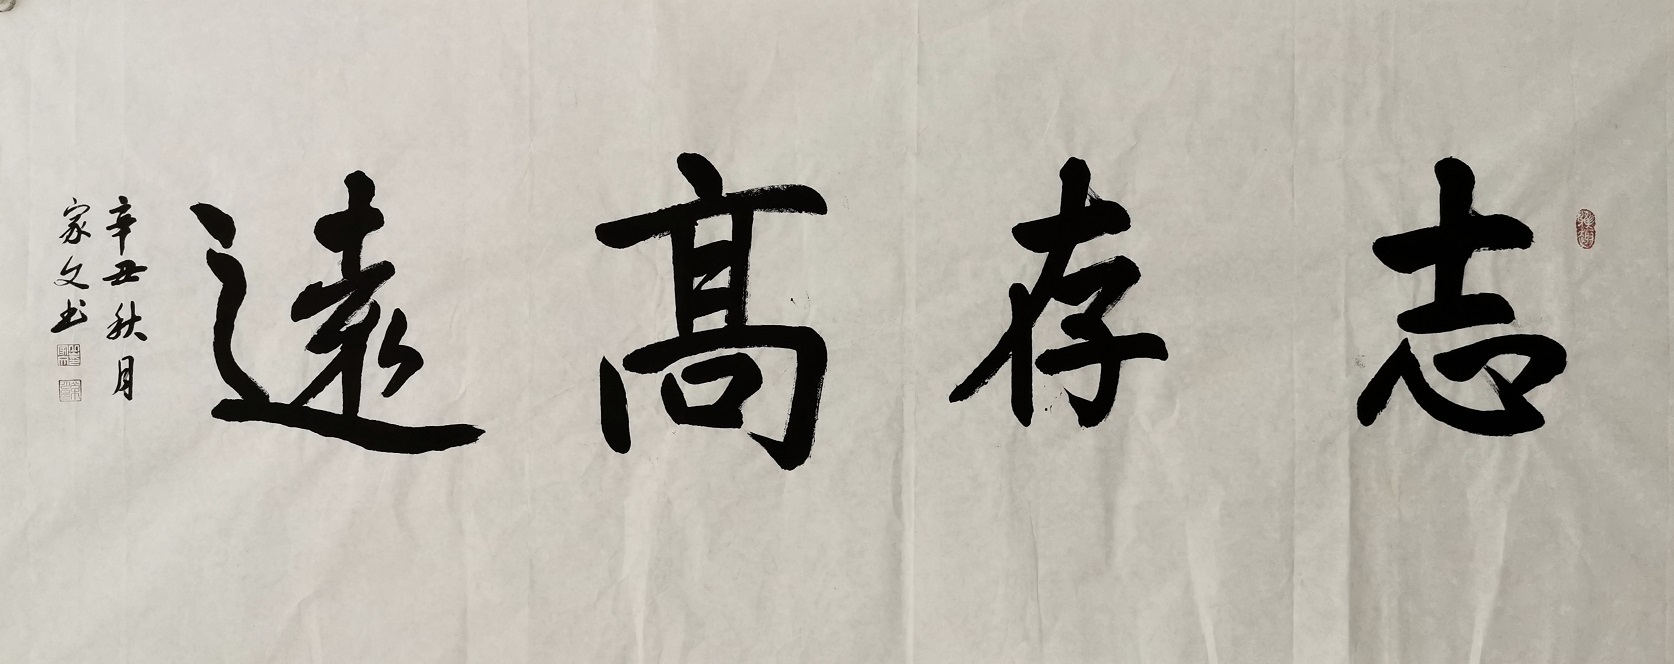 志存髙遠
辛丑秋月
家文书